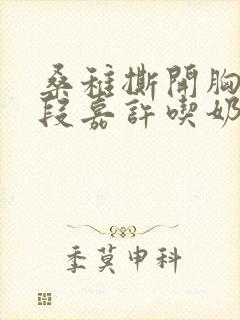 桑稚撕開胸
段嘉許喫奶
季莫申科